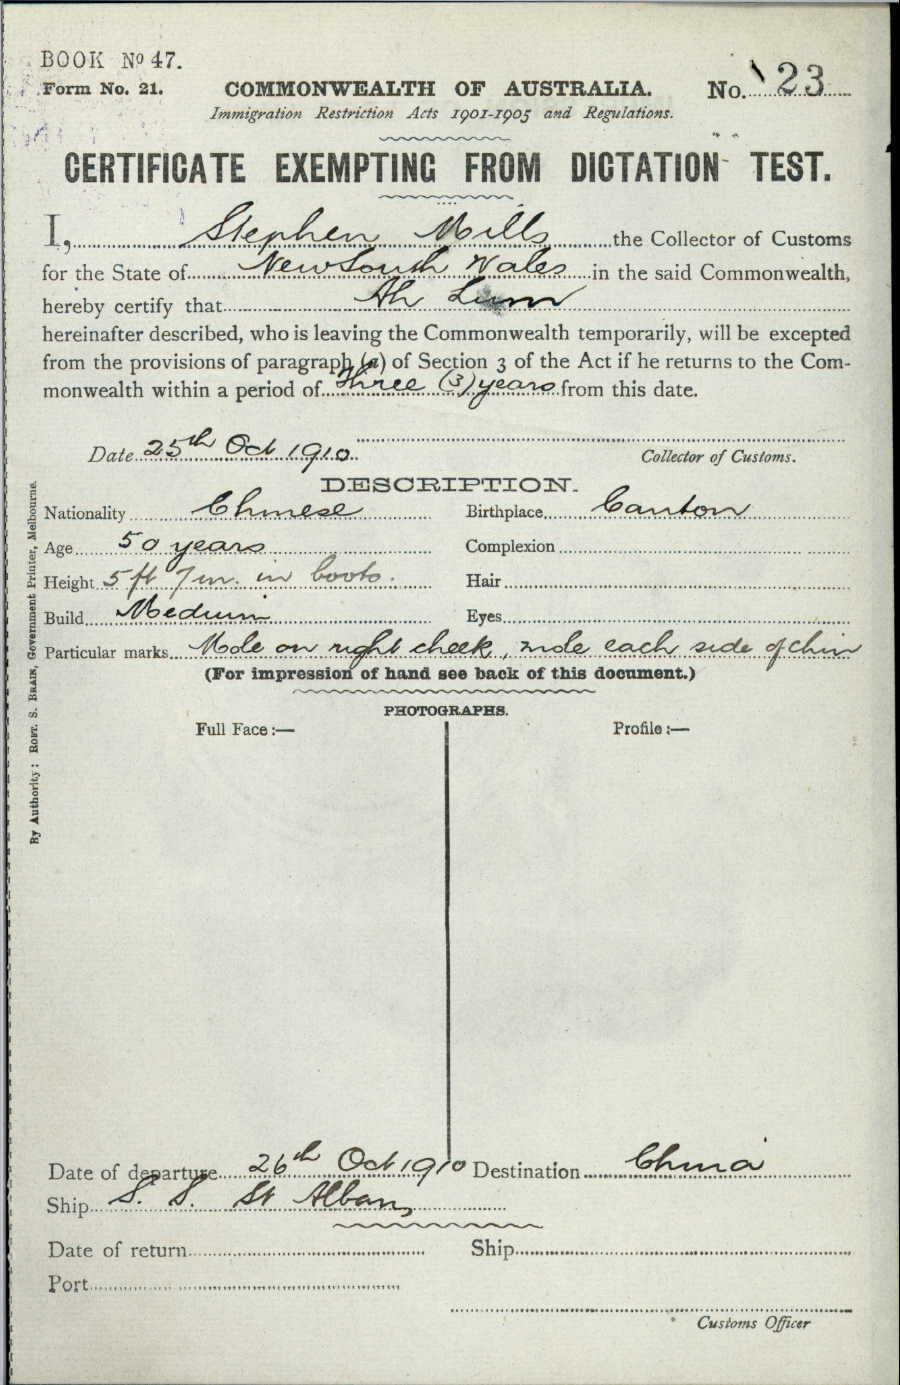 BOOK No 47.
Form No. 21.
COMMONWEALTH OF AUSTRALIA.
No. 23
Immigration Restriction Acts 1901-1905 and Regulations.
CERTIFICATE EXEMPTING FROM DICTATION TEST.
I, Stephen Mills the Collector of Customs
for the State of New South Wales in the said Commonwealth,
hereby certify that Ah Lum
hereinafter described, who is leaving the Commonwealth temporarily, will be excepted
from the provisions of paragraph (a) of Section 3 of the Act if he returns to the Com-
monwealth within a period of Three (3) years from this date.
Date 25th Oct 1910
Collector of Customs.
DESCRIPTION.
Nationality Chinese Birthplace Canton
Age 50 years Complexion
Height 5 ft 7 in. in boots. Hair
Build Medium Eyes
Particular marks Mole on right cheek, mole each side of chin
(For impression of hand see back of this document.)
PHOTOGRAPHS.
Full Face:— Profile:—
Date of departure 26th Oct 1910 Destination China
Ship S. S. St Albans
Date of return Ship
Port
Customs Officer
By Authority: ROBT. S. BRAIN, Government Printer, Melbourne.